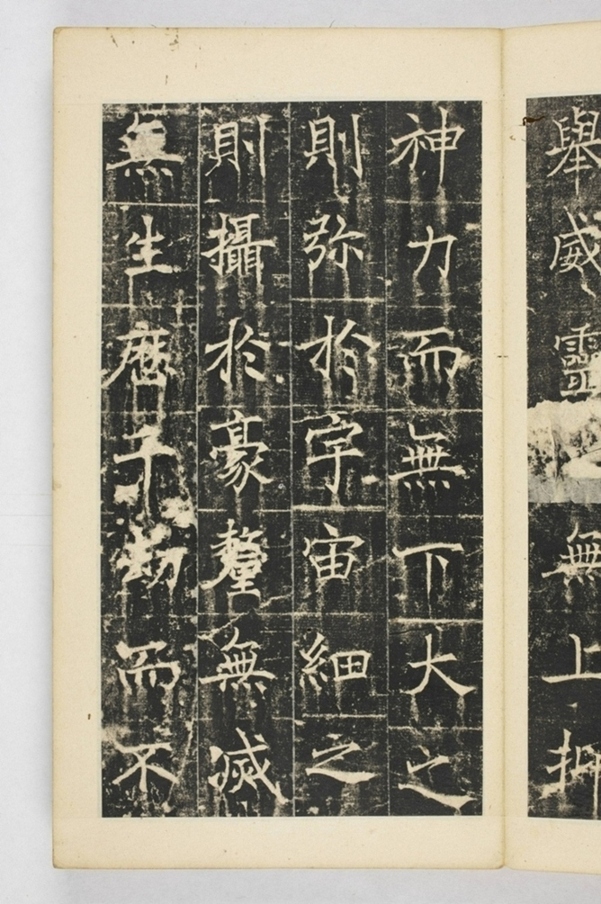 舉威靈無上抑
神力而無下大之
則弥於宇宙細之
則攝於豪釐無滅
無生歷千劫而不